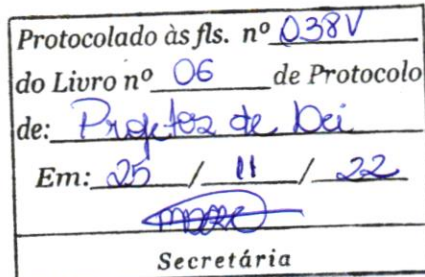 Protocolado às fls. nº 038V
do Livro nº 06 de Protocolo
de: Projetos de Lei
Em: 25 / 11 / 22
Secretária